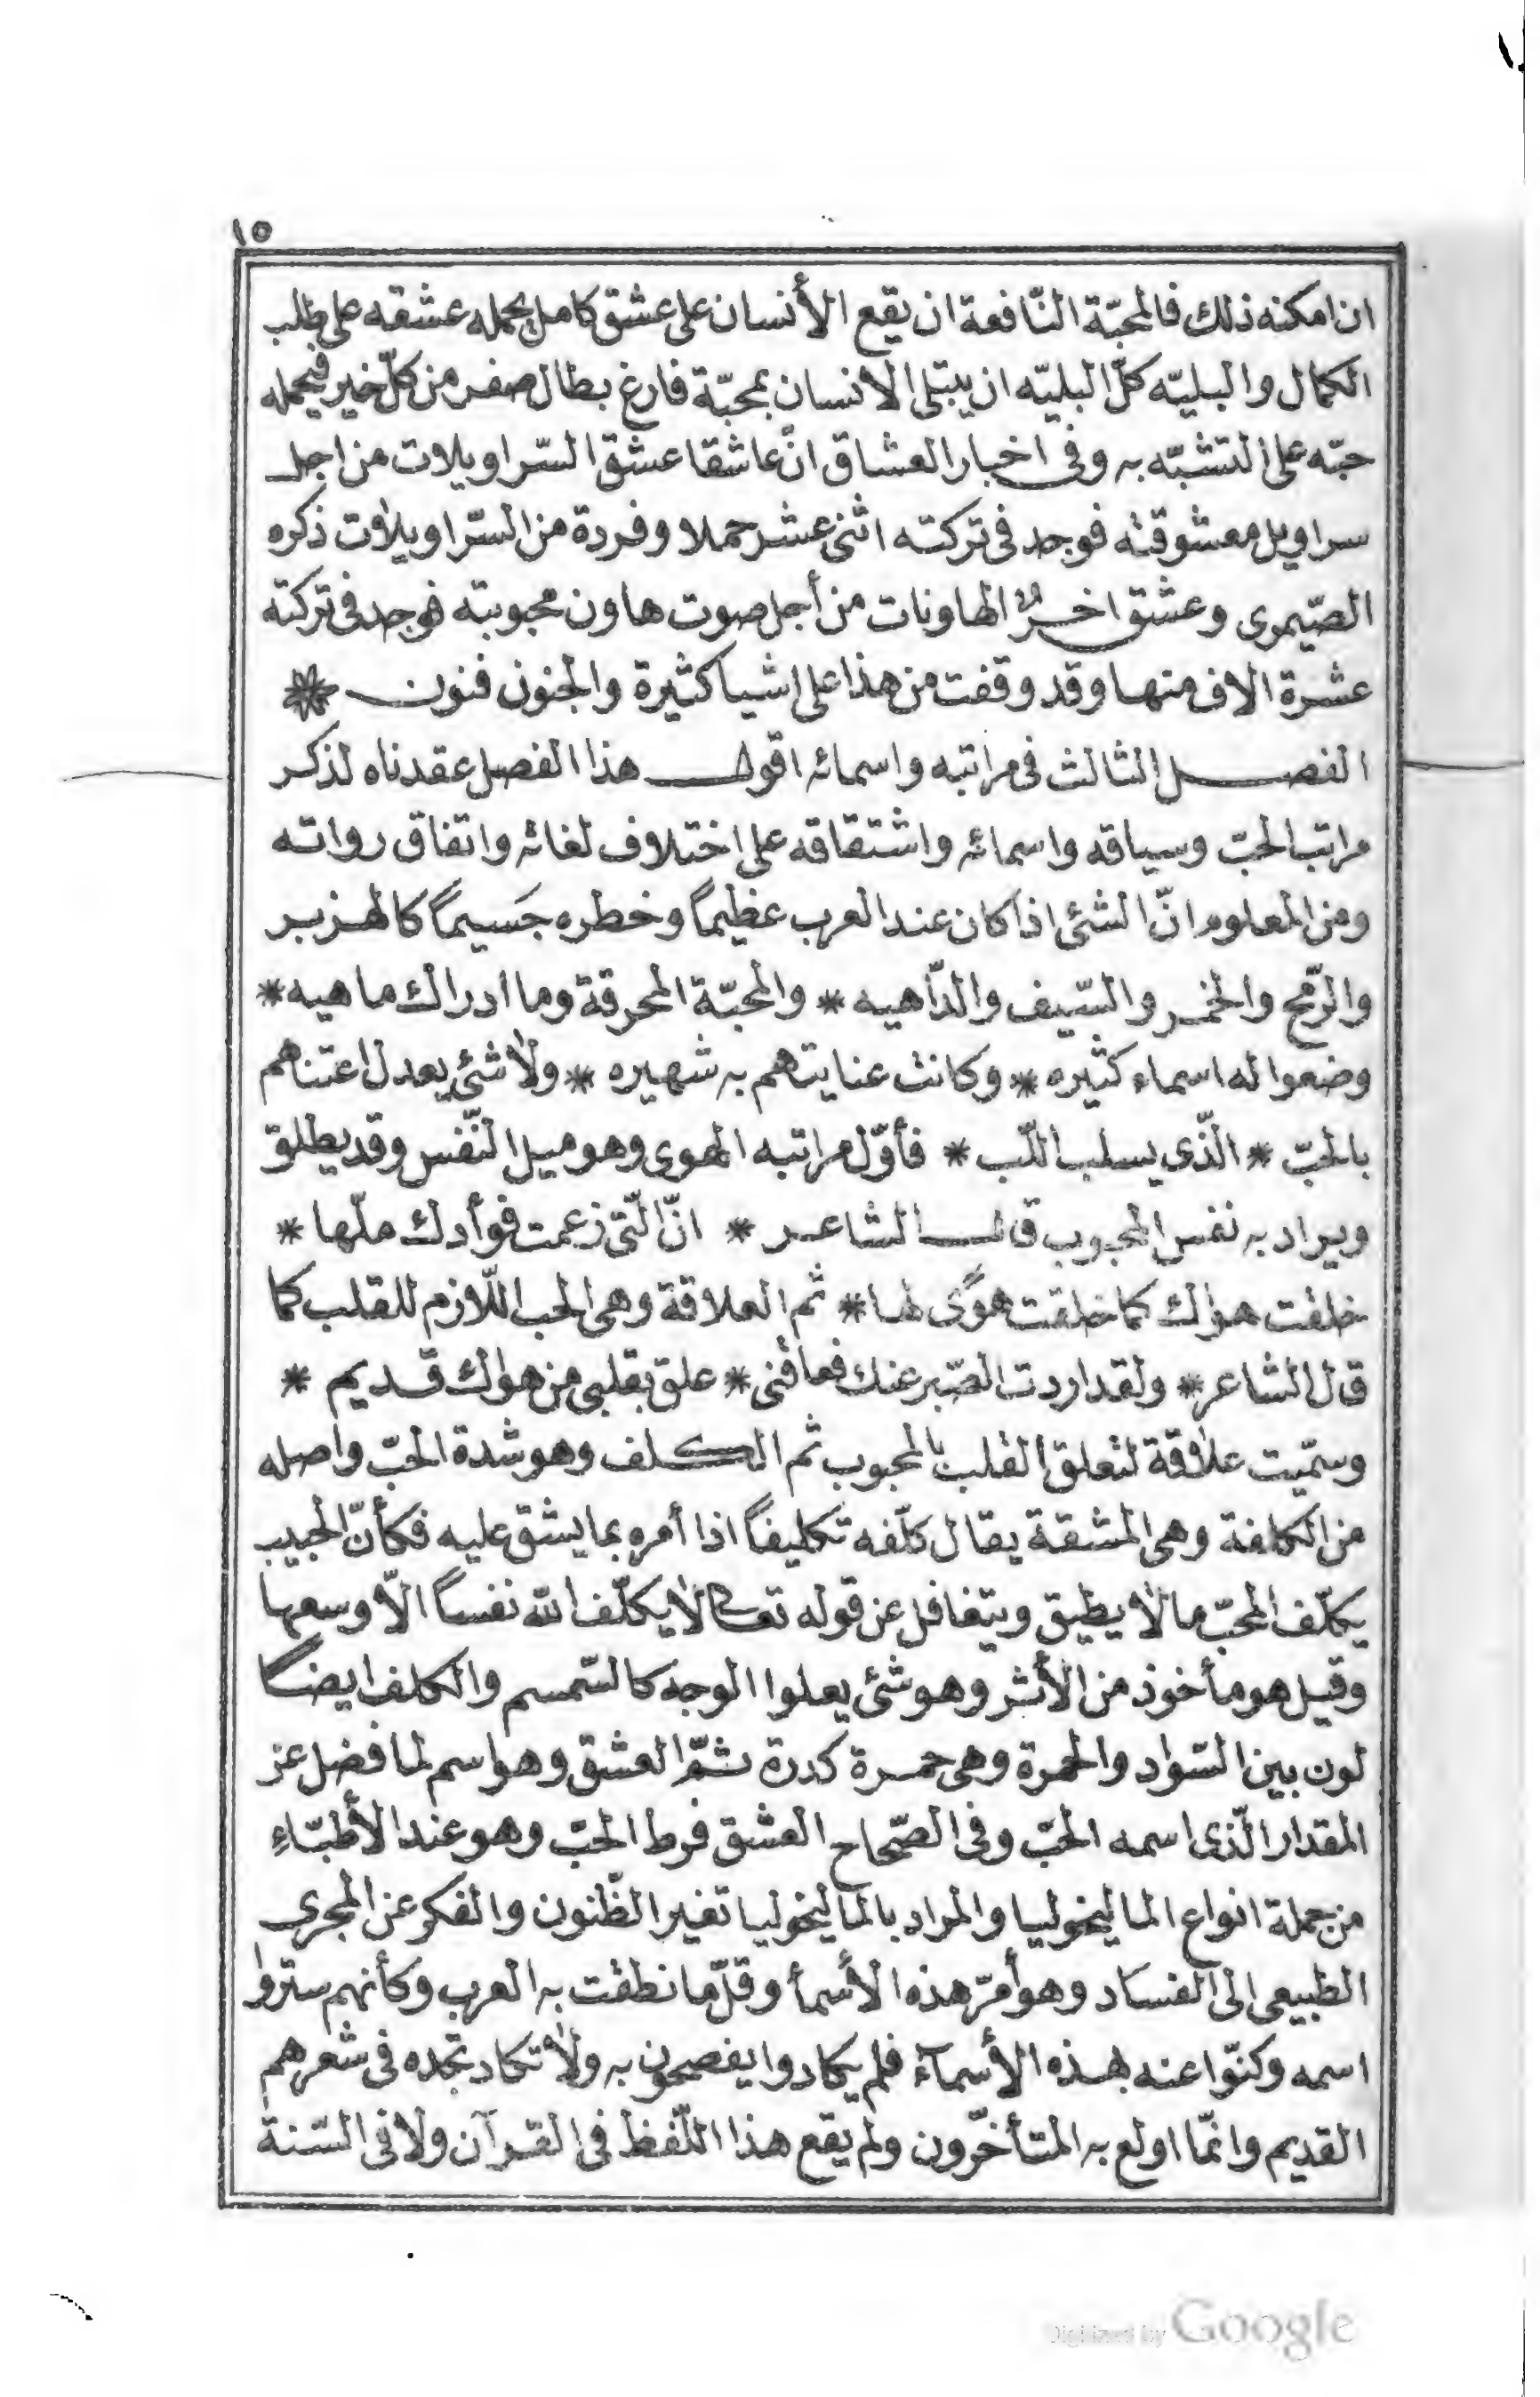 ١٥
ان امكنه ذلك فالمحبّة النّافعة ان يقع الأنسان على عشق كامل يحمله عشقه على طلب
الكمال والبليّه كلّ البليّه ان يبتلى الانسان بمحبّة فارغ بطال صفر من كلّ خير فيحمله
حبّه على التشبّه به وفى اخبار العشاق انّ عاشقا عشق السّراويلات من اجل
سراويل معشوقته فوجد فى تركته اثنى عشر حملا وفردة من السّراويلات ذكره
الصّيمرى وعشق اخرُ الهاونات من أجل صوت هاون محبوبته فوجد فى تركته
عشرة الاف منها وقد وقفت من هذا على اشيا كثيرة والجنون فنون *
الفصل الثالث فى مراتبه واسمائه اقول هذا الفصل عقدناه لذكر
مراتب الحبّ وسياقه واسمائه واشتقاقه على اختلاف لغاته واتفاق رواته
ومن المعلوم انّ الشئ اذا كان عند العرب عظيماً وخطره جَسيماً كالهزبر
والرّمح والخمر والسّيف والدّاهيه * والمحبّة المحرقة وما ادراك ما هيه *
وضعوا له اسماء كثيره * وكانت عنايتهم به شهيره * ولا شئ يعدل اعتناهم
بالحبّ * الّذى يسلب اللّب * فأوّل مراتبه الهوى وهو ميل النّفس وقد يطلق
ويراد به نفس المحبوب قال الشاعر * انّ الّتى زعمت فوأدك ملّها *
خلقت هواك كما خلقت هوًى لها * ثم العلاقة وهى الحب اللّازم للقلب كما
قال الشاعر * ولقد اردت الصّبر عنك فعاقنى * علق بقلبى من هواك قديم *
وسمّيت علاقة لتعلق القلب بالمحبوب ثم الكلف وهو شدة الحبّ واصله
من الكلفة وهى المشقة يقال كلّفه تكليفاً اذا أمره بما يشق عليه فكأنّ الحبيب
يكلّف المحبّ ما لا يطيق ويتغافل عن قوله تعالى لا يكلّف الله نفساً الّا وسعها
وقيل هو مأخوذ من الأثر وهو شئ يعلوا الوجه كالسّمسم والكلف ايضاً
لون بين السّواد والحمرة وهى حمرة كدرة ثمّ العشق وهو اسم لما فضل عن
المقدار الّذى اسمه الحبّ وفى الصّحاح العشق فرط الحبّ وهو عند الأطبّاءِ
من جملة انواع الماليخوليا والمراد بالماليخوليا تغير الظّنون والفكر عن المجرى
الطبيعى الى الفساد وهو أمرّ هذه الأسمأ وقلّما نطقت به العرب وكأنهم ستروا
اسمه وكنّوا عنه بهذه الأسمآء فلم يكادوا يفصحون به ولا تكاد تجده فى شعرهم
القديم وانّما اولع به المتأخّرون ولم يقع هذا اللّفظ فى القرآن ولا فى السّنة
Digitized by Google